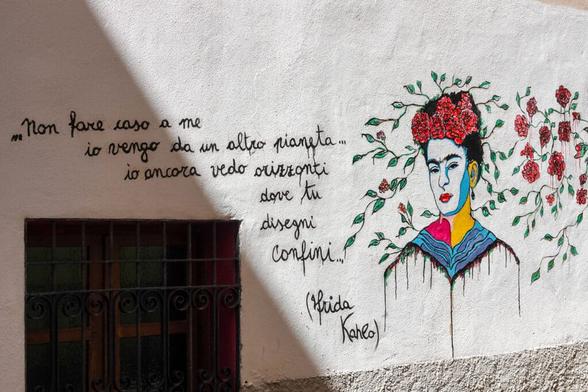 „Non fare caso a me
io vengo da un altro pianeta...
io ancora vedo orizzonti
dove tu
disegni
confini...
(Frida
Kahlo)